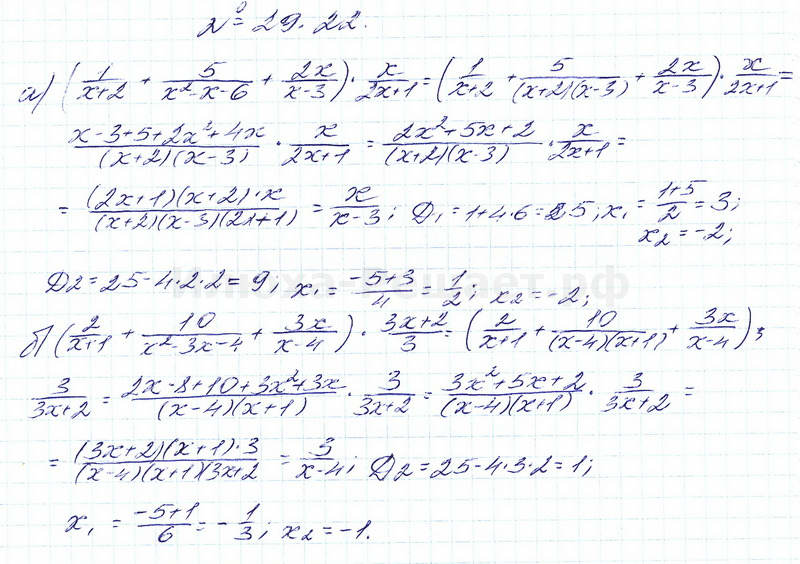 № 29.22.
а) (1/(x+2) + 5/(x²-x-6) + 2x/(x-3)) · x/(2x+1) = (1/(x+2) + 5/((x+2)(x-3)) + 2x/(x-3)) · x/(2x+1) =
(x-3+5+2x²+4x)/((x+2)(x-3)) · x/(2x+1) = (2x²+5x+2)/((x+2)(x-3)) · x/(2x+1) =
= ((2x+1)(x+2)·x)/((x+2)(x-3)(2x+1)) = x/(x-3); D₁=1+4·6=25; x₁=(1+5)/2=3;
x₂=-2;
D2=25-4·2·2=9; x₁=(-5+3)/4=1/2; x₂=-2;
б) (2/(x+1) + 10/(x²-3x-4) + 3x/(x-4)) · (3x+2)/3 = (2/(x+1) + 10/((x-4)(x+1)) + 3x/(x-4));
3/(3x+2) = (2x-8+10+3x²+3x)/((x-4)(x+1)) · 3/(3x+2) = (3x²+5x+2)/((x-4)(x+1)) · 3/(3x+2) =
= ((3x+2)(x+1)·3)/((x-4)(x+1)(3x+2) = 3/(x-4); D2=25-4·3·2=1;
x₁ = (-5+1)/6 = -1/3; x₂=-1.